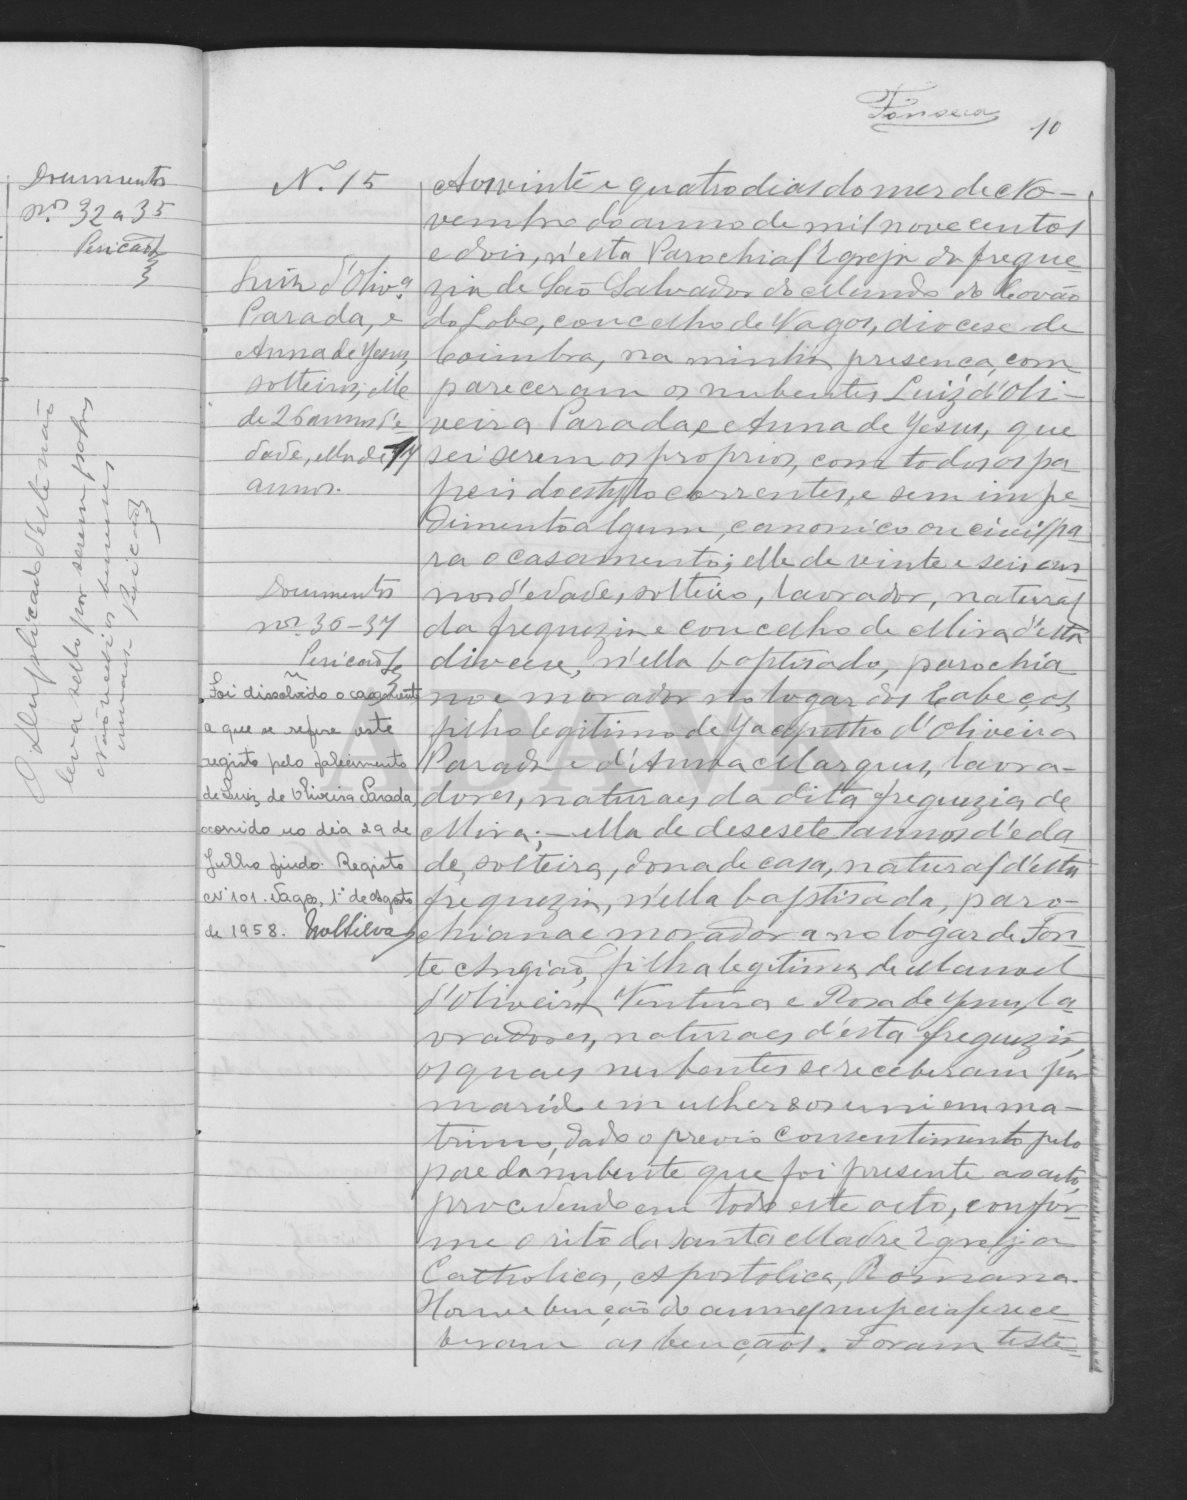 Documentos
nos 32 a 35
O duplicado d'este não
leva sello por serem pobres
Fonseca
10
N.º 15
Luiz d'Olivª
Parada, e
Anna de Jesus,
solteiros; elle
de 26 annos d'e-
dade, ella de 17
annos.
Documentos
nos 36-37
Foi dissolvido o casamento
a que se refere este
registo pelo falecimento
de Luiz de Oliveira Parada,
ocorrido no dia 29 de
Julho findo. Registo
nº 101. Vagos, 1º de Agosto
de 1958.
Aos vinte e quatro dias do mez de No-
vembro do anno de mil nove centos
e dois, n'esta Parochial Egreja da fregue-
zia de São Salvador do Mundo do Covão
do Lobo, concelho de Vagos, diocese de
Coimbra, na minha presença, com
pareceram os nubentes Luiz d'Oli-
veira Parada, e Anna de Jesus, que
sei serem os proprios, com todos os pa
peis do estylo correntes, e sem impe
dimento algum, canonico ou civil pa
ra o casamento; elle de vinte e seis an-
nos d'edade, solteiro, lavrador, natural
da freguezia e concelho de Mira d'esta
diocese, n'ella baptisado, parochia
no e morador no logar das Cabeças,
filho legitimo de Jacintho d'Oliveira
Parada e d'Anna Marques, lavra-
dores, naturaes da dita freguezia de
Mira; — ella de desesete annos d'eda
de, solteira, dona de casa, natural d'esta
freguezia, n'ella baptisada, paro-
chiana e moradora no logar de Fon
te Angião, filha legitima de Manoel
d'Oliveira Ventura e Rosa de Jesus, la
vradores, naturaes d'esta freguezia,
os quaes nubentes se receberam por
marido e mulher e os uni em ma-
trimo, dado o previo consentimento pelo
pae da nubente que foi presente ao acto,
procedendo em todo este acto, confor-
me o rito da Santa Madre Egreja
Catholica, Apostolica, Romana.
Houve benção de
beram as bençãos. Foram teste-